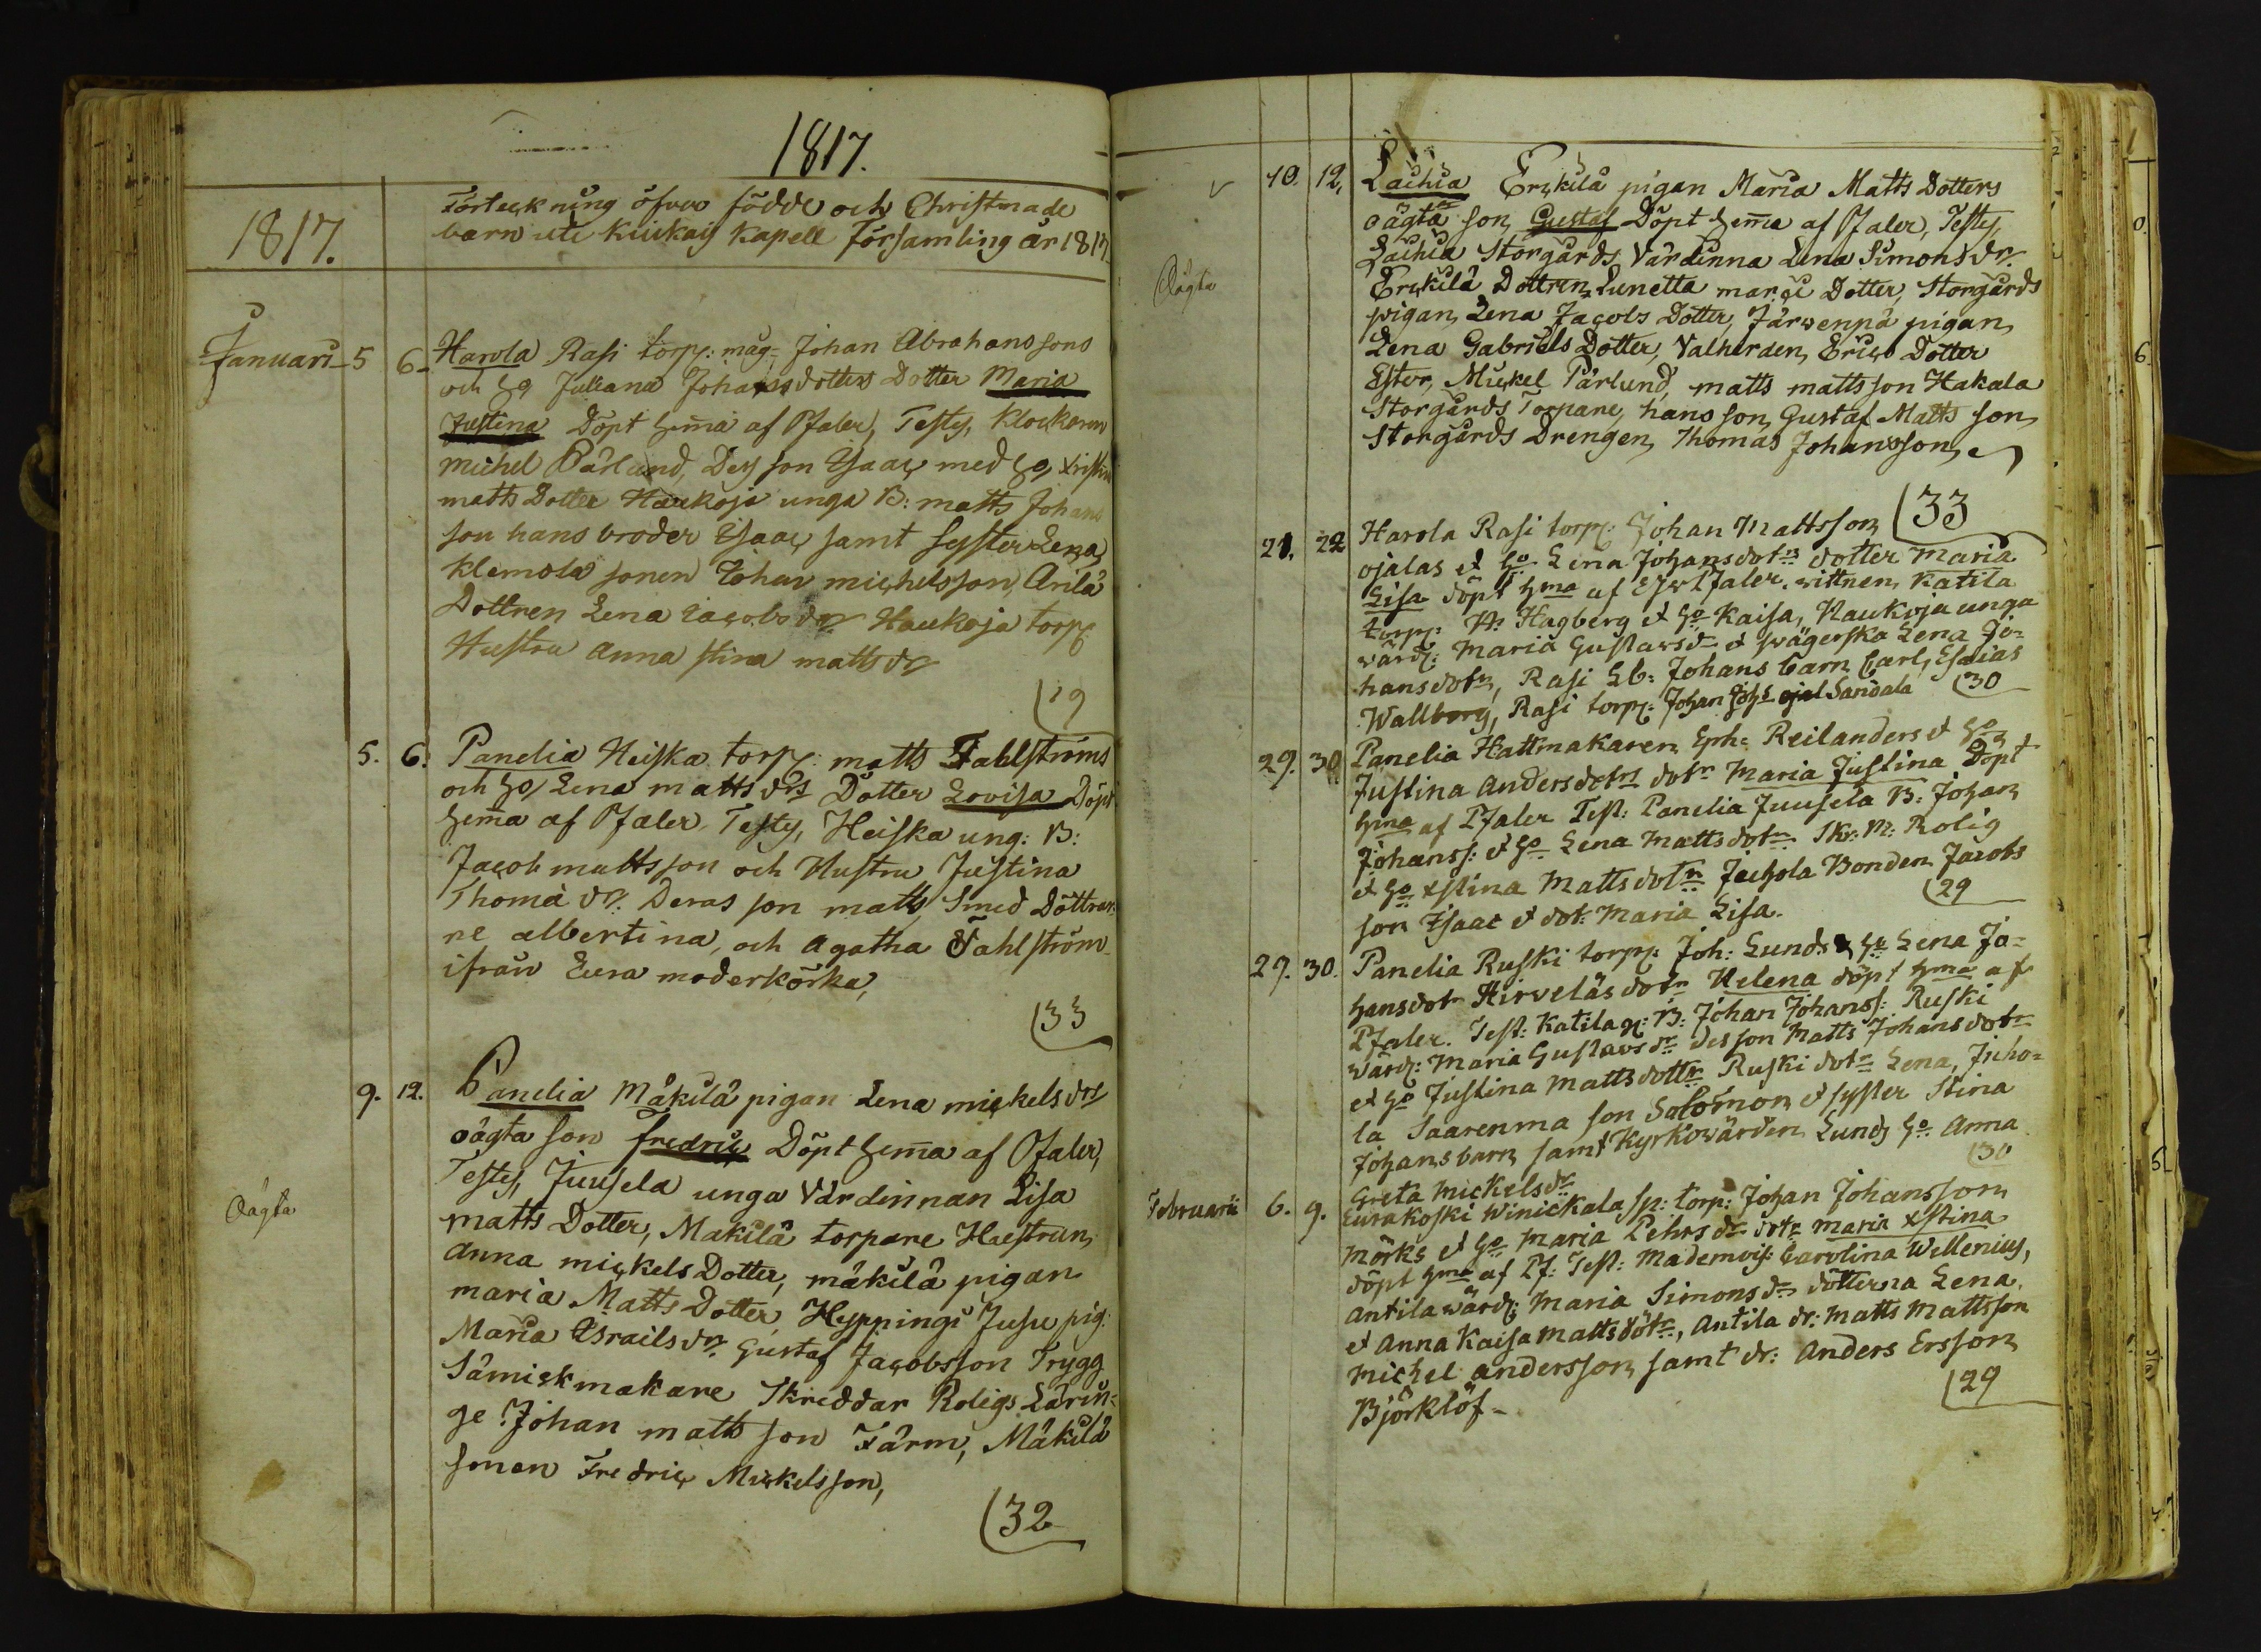 1817.
1817.
Förteckning öfver födde och Christnade
barn uti Kiukais Kapell församling år 1817
Januari 5 6 Harola Rasi torp: måg- Johan Abrahanssons
och ho Juliana Johansdotters Dotter Maria
Justina Döpt hema af Pfaler, Testes, Klockaren
Michel Pärlund, Des son Isaac med ho, Kristin
matts Dotter Haukoja unga B: matts Johans
son hans broder Isaac samt Syster Lena,
Klemola sonen Johan michelsson, Arilä
Dottren Lena Jacobsdr Haukoja torp
Hustru Anna stina mattsdr
(29
5. 6. Panelia Heiska torp: matts Fahlströms
och ho Lena mattsdrs Dotter Lovisa Döpt
hema af Pfaler. Testes, Heiska ung: B:
Jacob mattsson och Hustru Justina
Thoma dr. Deras son matts Smed Döttrar
ne albertina, och Agatha Fahlström
ifrån Eura moderkörka,
(33
9. 12. Panelia Mäkilä pigan Lena mickelsdrs
oägta son Fredric Döpt hema af Pfaler,
Oägta
Testes, Juusela unga Värdinnan Lisa
matts Dotter, Makilä torpare Hustrun,
Anna mickels Dotter, mäkilä pigan
maria Matts Dotter, Hyppingi Jusu pig:
Maria Israilsdr. Gustaf Jacobsson Trygg
Sämiskmakare Skreddar Roligs Lärin=
ge Johan matts son Färm, Mäkilä
sonen Fredric Mickelsson,
(32
10. 12. Laihia Erkilä pigan Maria Matts Dotters
oägta son, Gustaf Döpt hema af Pfaler, Testes,
Oägta
Laihia Storgårds Värdinna Lena Simonsdr.
Erkilä Dottren Lunetta Dotter, Storgårds
pigan, Lena Jacobs Dotter, Järvenpä pigan,
Lena Gabriels Dotter, Valherden, Erics Dotter
Ester, Mickel Pärlund, matts mattsson Hakala
Storgårds Torpare, hans son, Gustaf Matts son,
Storgårds Drengen, Thomas Johansson,
(33
21. 22 Harola Rasi torp: Johan Mattsson
ojalas et ho Lena Johansdotrs dotter Maria
Lisa döpt hma af Pfaler. wittnen Katila
torp: M: Hagberg et ho Kaisa, Haukoja unga
wärd: Maria Gustavsdr et swägerska Lena Jo-
hansdotr, Rasi Lb: Johans barn Carl, Esaias
Wallborg, Rasi torp: Johan Johs ojal Sandala
(30
29. 30. Panelia Hattmakaren Eph: Reilanders et ho
Justina Andersdotrs dotr Maria Justina Döpt
hma af Pfaler Test: Panelia Juusela B: Johan
Johanss: et ho Lena Mattsdotr Skr: M: Rolig
et ho xstina Mattsdotr Jeehola Bonden Jacobs
son Isaac et dot: Maria Lisa.
(29
29. 30. Panelia Ruski torp: Joh: Lunds & ho Lena Jo-
hansdotr Hirveläs dotr Helena döpt hma af
Pfaler. Test: Katila g: B: Johan Johanss: Ruski
wärd: Maria Gustavsdr des son Matts Johansdotr
et ho Justina Mattsdottr Ruski dotr Lena, Jeeho=
la Saarenma son Solomon et syster Stina
Johans barn samt Kyrkowärden Lunds ho Anna
Greta Mickelsdr
(30
Februarii 6. 9. Eurakoski Winickala sp: torp: Johan Johansson
Mörks et ho Maria Pehrsdr dotr Maria xstina
döpt hma af Pf: Test: Mademois: Carolina Wellenius,
Antila wärd: Maria Simonsdr dötterna Lena,
et Anna Kaisa Matts dötr, Antila dr: Matts Mattsson
Michel Andersson samt dr: Anders Ersson
Björklöf-
(29